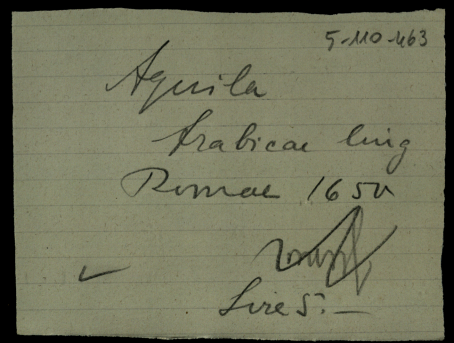 5-110-463
Aquila
Arabicae ling
Romae 1650
Lire 5.—